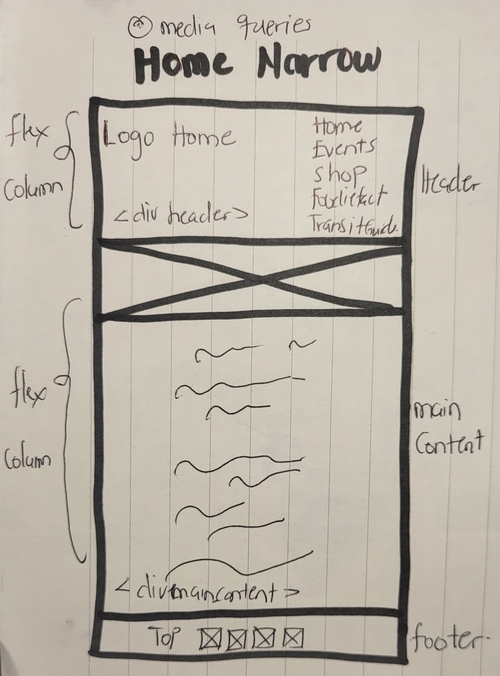 media queries
Home Narrow
flex
column
Logo Home
<div header>
Home
Events
Shop
TransitGuid.
Header
flex
column
main
Content
<div maincontent>
TOP
footer.